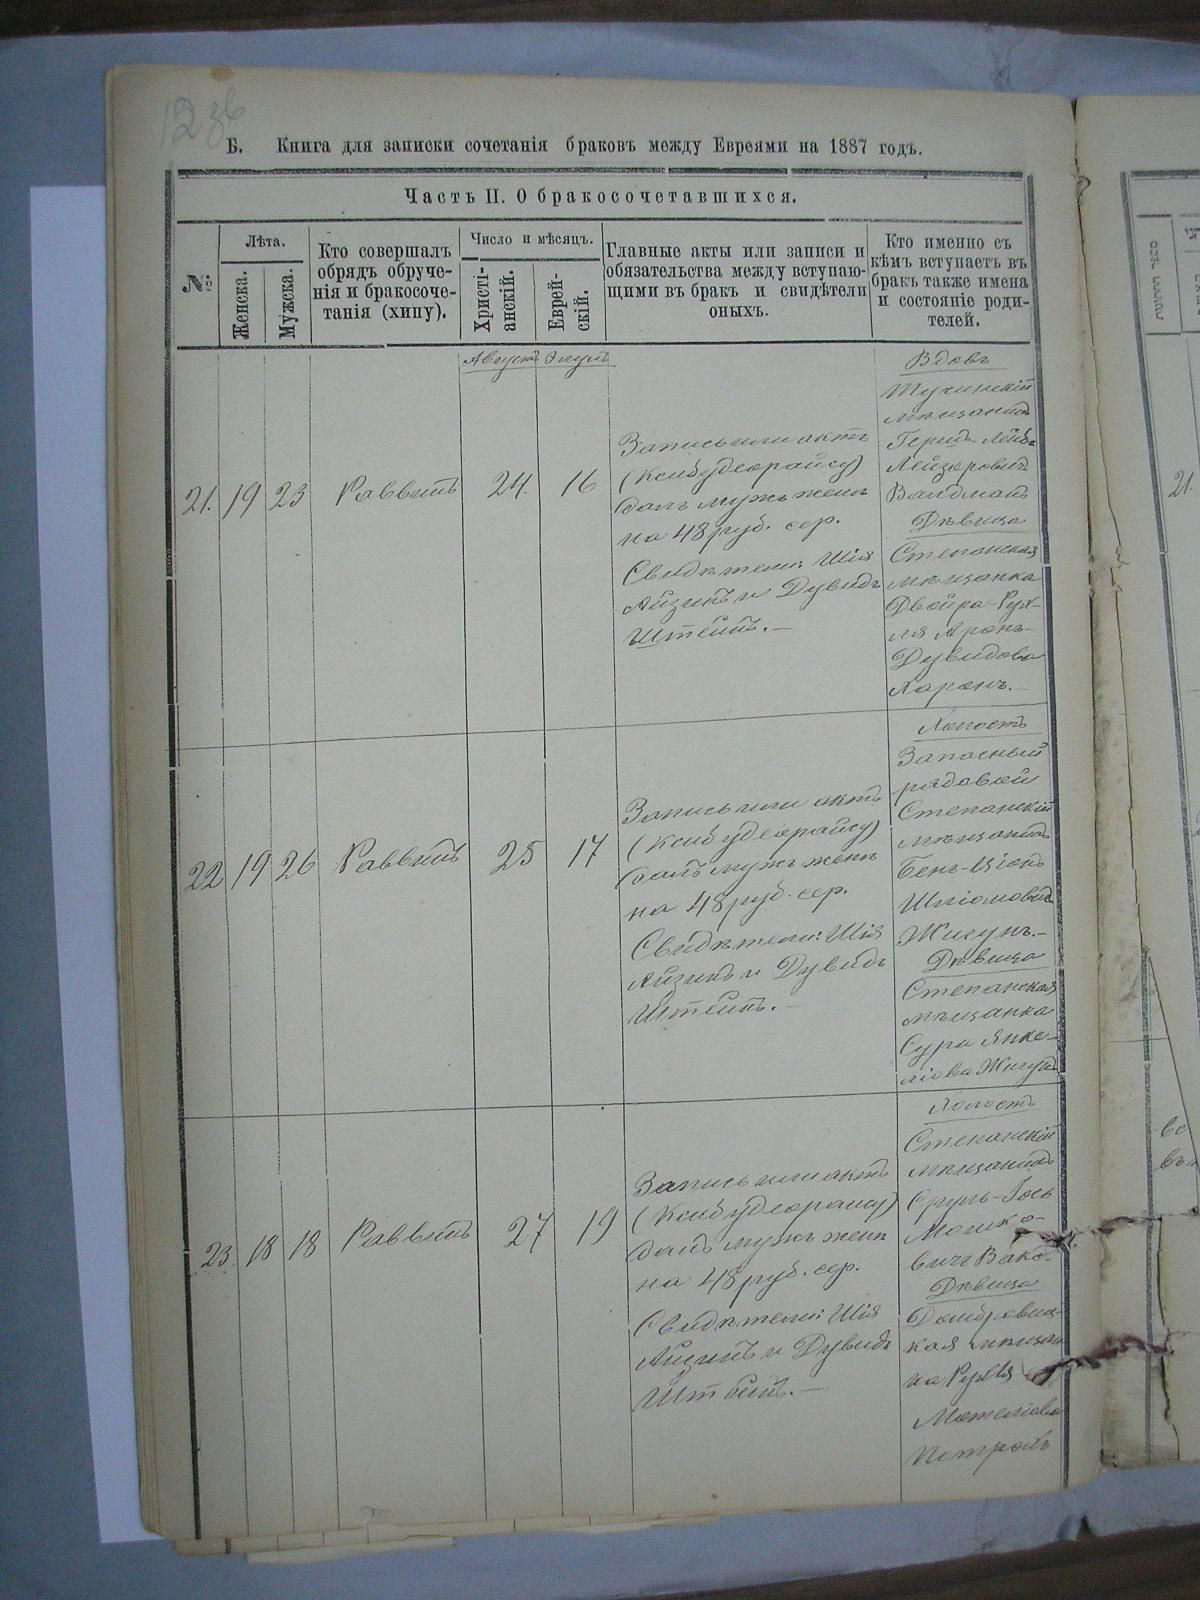 Б. Книга для записки сочетанія браковъ между Евреями на 1887 годъ.
Часть II. О бракосочетавшихся.
№
Лѣта.
Женска.
Мужска.
Кто совершалъ
обрядъ обруче-
нія и бракосоче-
танія (хипу).
Число и мѣсяцъ.
Христі-
анскій.
Еврей-
скій.
Главные акты или записи и
обязательства между вступаю-
щими въ бракъ и свидѣтели
оныхъ.
Кто именно съ
кѣмъ вступаетъ въ
бракъ также имена
и состояніе роди-
телей.
Августъ Элулъ
21. 19 23 Раввинъ 24. 16
Запись или актъ
(Ксибудеорайсу)
далъ мужъ женѣ
на 48 руб. сер.
Свидѣтели: Шія
Айзикъ и Дувидъ
Штейнъ.—
Вдовъ
Тучинскій
мѣщанинъ
Гершъ-Лейбъ
Лейзеровичъ
Валдманъ
Дѣвица
Степанская
мѣщанка
Двойра-Рух-
ля Аронъ-
Дувидова
22 19 26 Раввинъ 25 17
Запись или актъ
(Ксибудеорайсу)
далъ мужъ женѣ
на 48 руб. сер.
Свидѣтели: Шія
Айзикъ и Дувидъ
Штейнъ.—
Холостъ
Запасный
рядовой
Степанскій
мѣщанинъ
Бенъ-Ціонъ
Шліомовичъ
Жигунъ.—
Дѣвица
Степанская
мѣщанка
Сура Янке-
ліова Жигунъ
23 18 18 Раввинъ 27 19
Запись или актъ
(Ксибудеорайсу)
далъ мужъ женѣ
на 48 руб. сер.
Свидѣтели: Шія
Айзикъ и Дувидъ
Штейнъ.—
Холостъ
Степанскій
мѣщанинъ
Сруль-Іось
Мошко-
вичъ Вакс.
Дѣвица
Домбровиц-
кая мѣщан
ка Рухля
Мотеліова
21.